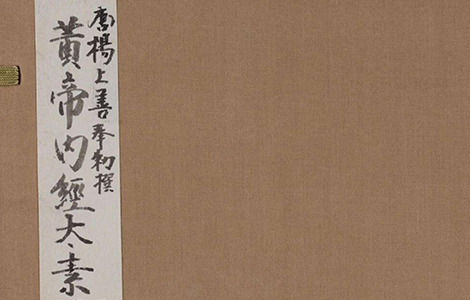 唐楊上善奉勅撰
黃帝內經大素